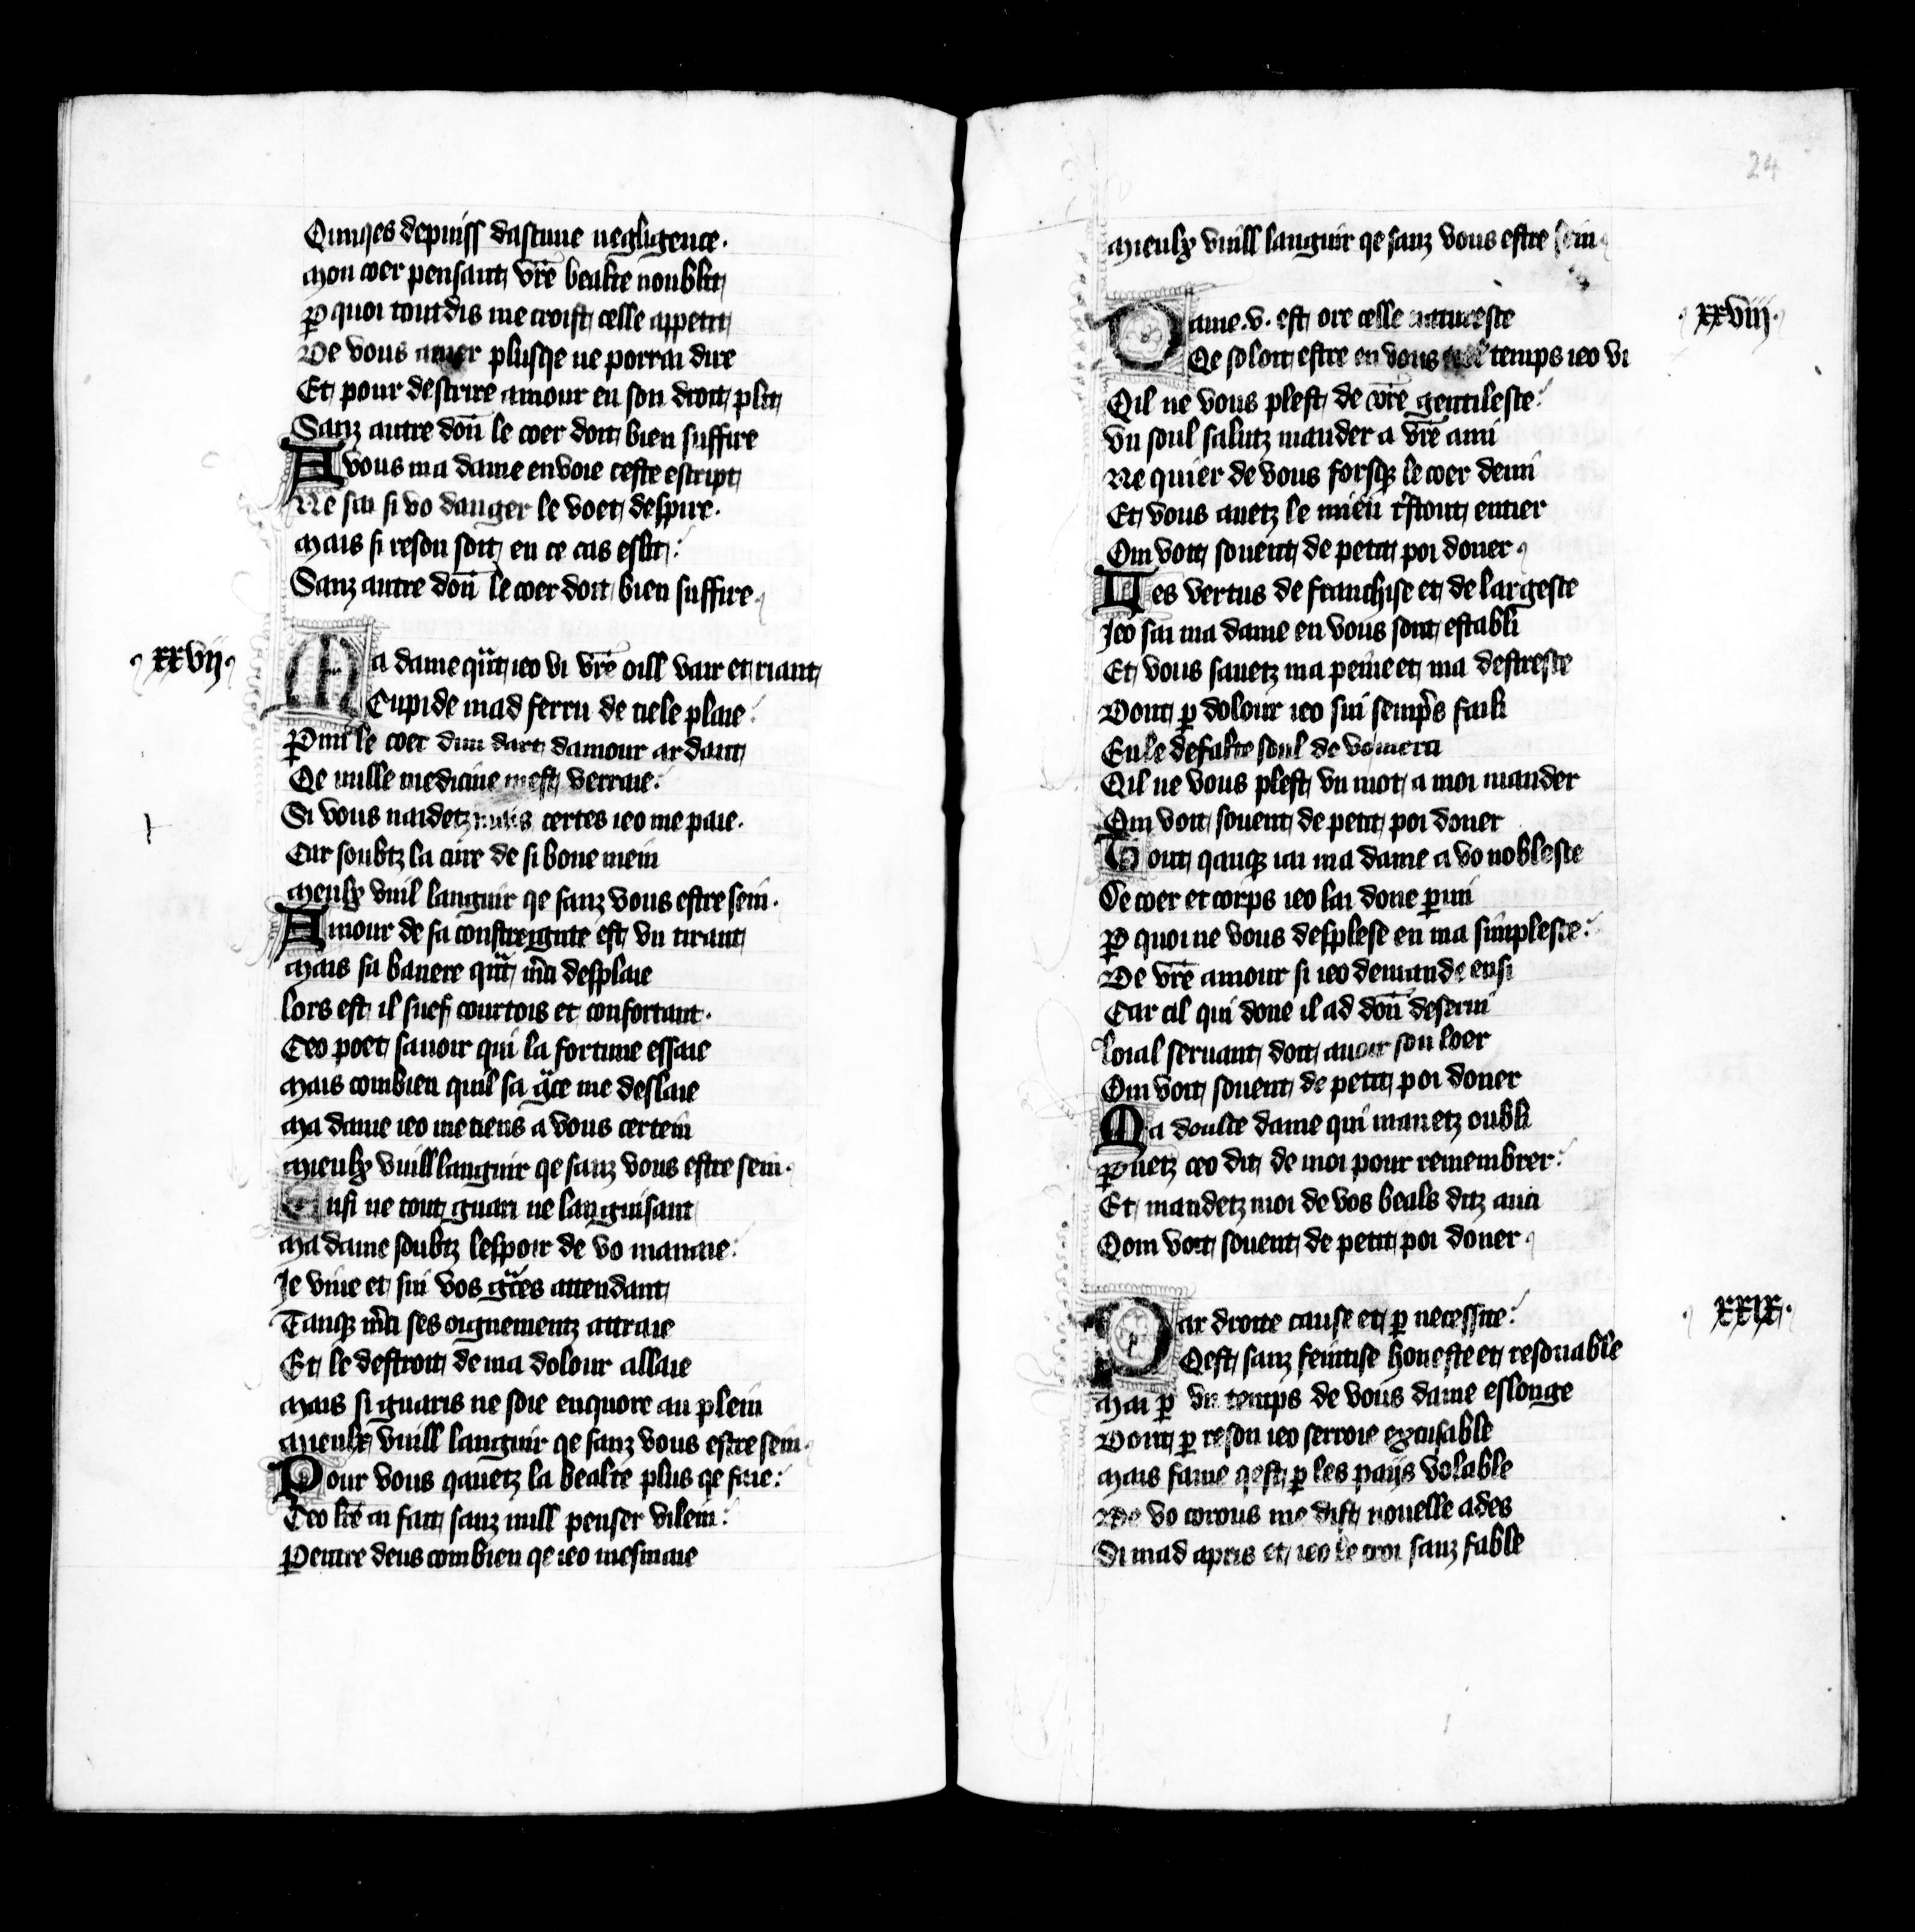 Qunqes depuiss dascune negligence.
Mon coer pensant vr̄e bealte noublit
ꝑ quoi toutdis me croist celle appetit
De vous amer plusqe ne porrai dire
Et pour descrire amour en son droit plit
Sanz autre don̄ le coer doit bien suffire
A vous ma dame envoie ceste escript
Ne sai si vo danger le voet despire.
Mais si reson soit en ce cas eslit:
Sanz autre don̄ le coer doit bien suffire.
·xxvij·
Ma dame qͣnt ieo vi vr̄e oill vair et riant
Cupide mad ferru de tiele plaie:
ꝑmi le coer dun dart damour ardant
Qe nulle medicine mest verraie:
Si vous naidetz mais certes ieo me paie.
Car soubtz la cure de si bone mein
Meulx vuil languir qe sanz vous estre sein.
Amour de sa constreignte est vn tirant
Mais sa banere qͣnt m̄ci desplaie
lors est il suef courtois et confortant.
Ceo poet sauoir qui la fortune essaie
Mais combien quil sa gͣce me deslaie
Ma dame ieo me tiens a vous certein
Mieulx vuill languir qe sanz vous estre sein.
Ensi ne tout guari ne languisant
Ma dame soubtz lespoir de vo manaie:
Je viue et sui vos gͣces attendant
Tanqꝫ m̄ci ses oignementz attraie
Et le destroit de ma dolour allaie
Mais si guaris ne soie enquore au plein
Mieulx vuill languir qe sanz vous estre sein.
Pour vous qauetz la bealte plus qe faie:
Ceo lr̄e ai fait sanz mill penser vilein:
ꝑentre deus combien qe ieo mesmaie
24
Mieulx vuill languir qe sanz vous estre sein.
·xxviij·
Dame .v. est ore celle naturesce
Qe soloit estre en vous temps ieo vi
Qil ne vous plest de vr̄e gentilesce:
Vn soul salutz mander a vr̄e ami
Ne quier de vous forsqꝫ le coer demi
Et vous auetz le mien tr̄stout entier
Om voit souent de petit poi doner.
Les vertus de franchise et de largesce
Jeo sai ma dame en vous sont establi
Et vous sauetz ma peine et ma destresce
Dont ꝑ dolour ieo sui semp̄s faili
En le defalte soul de vo merci
Qil ne vous plest vn mot a moi mander
Om voit souent de petit poi doner
Tout qanqꝫ iai ma dame a vo noblesce
De coer et corps ieo lai done ꝑmi
ꝑ quoi ne vous desplese en ma simplesce:
De vr̄e amour si ieo demande ensi
Car cil qui done il ad don̄ deserui
loial seruant doit auoir son loer
Om voit souent de petit poi doner
Ma doulce dame qui mauetz oubli
ꝑnetz ceo dit de moi pour remembrer:
Et mandetz moi de vos beals ditz auci
Qom voit souent de petit poi doner.
·xxix·
Par droite cause et ꝑ necessite:
Qest sanz feintise honeste et resonable
Mai ꝑ vn temps de vous dame eslonge
Dont ꝑ reson ieo serroie excusable
Mais fame qest ꝑ les paijs volable
De vo corous me dist nouelle ades
Di mad apris et ieo le croi sanz fable